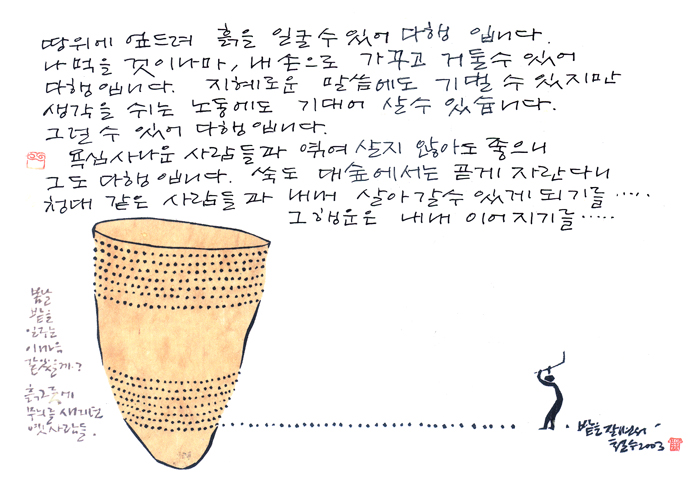 땅위에 엎드려 흙을 일굴수있어 다행 입니다.
나먹을 것이나마, 내손으로 가꾸고 거둘수있어
다행입니다. 지혜로운 말씀에도 기댈 수 있지만
생각을 쉬는 노동에도 기대어 살수 있습니다.
그럴 수 있어 다행입니다.
욕심사나운 사람들과 엮여 살지 않아도 좋으니
그도 다행입니다. 쑥도 대숲에서는 곧게 자란다니
청대 같은 사람들과 내내 살아갈수 있게 되기를 ‥‥‥
그행운은 내내 이어지기를 ‥‥‥
봄날
밭을
일구는
이마음
같았을까?
흙그릇에
무늬를 새기던
옛사람들.
밭을 갈면서
철수 2003